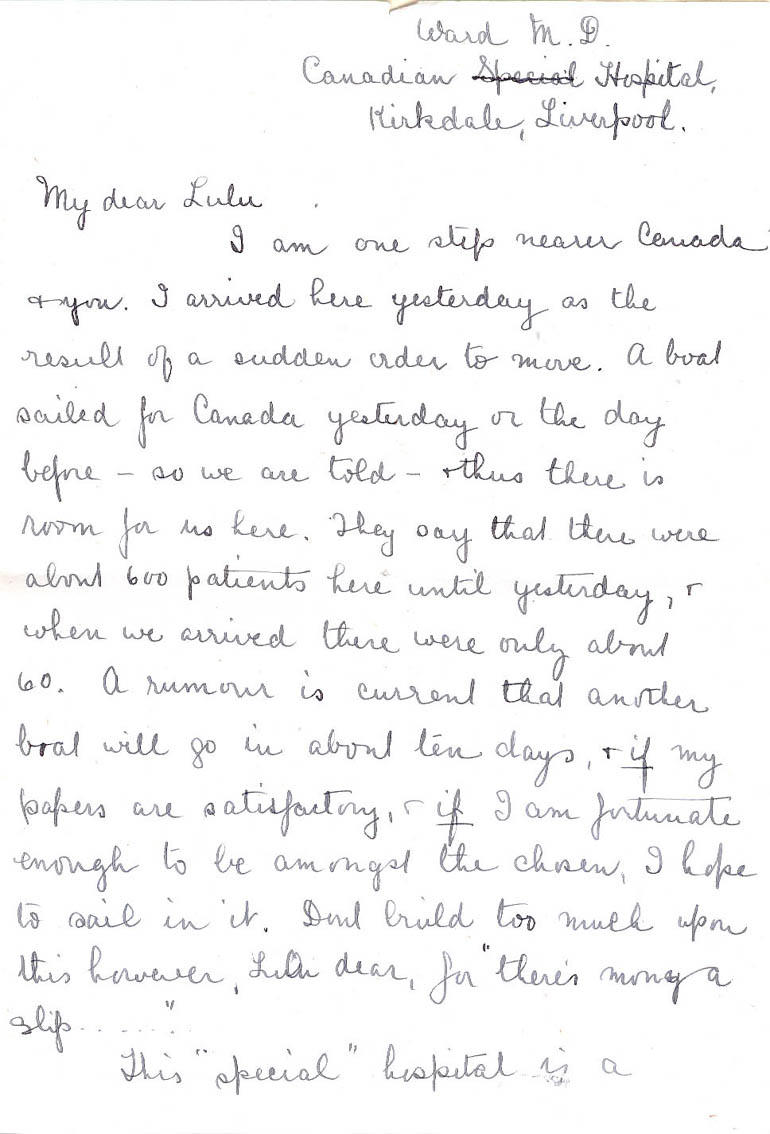 Ward M.D.
Canadian Special Hospital,
Kirkdale, Liverpool.
My dear Lulu
I am one step nearer Canada
& you. I arrived here yesterday as the
result of a sudden order to move. A boat
sailed for Canada yesterday or the day
before – so we are told – & thus there is
room for us here. They say that there were
about 600 patients here until yesterday, &
when we arrived there were only about
60. A rumour is current that another
boat will go in about ten days, & if my
papers are satisfactory, & if I am fortunate
enough to be amongst the chosen, I hope
to sail in it. Dont build too much upon
this however, Lulu dear, for "there's mony a
slip......".
This "special" hospital is a